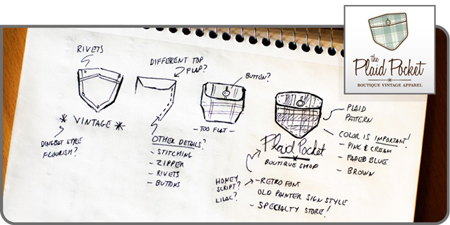 RIVETS
DIFFERENT TOP
FLAP?
BUTTON?
- TOO FLAT -
* VINTAGE *
DINGBAT TYPES
FLOURISH?
OTHER DETAILS?
- STITCHING
- ZIPPER
- RIVETS
- BUTTONS
PLAID
PATTERN
COLOR IS IMPORTANT!
- PINK & CREAM
- FADED BLUE
- BROWN
Plaid Pocket
BOUTIQUE SHOP
HONEY
SCRIPT?
LILAC?
- RETRO FONT
OLD PAINTER SIGN STYLE
- SPECIALTY STORE!
the
Plaid Pocket
BOUTIQUE VINTAGE APPAREL